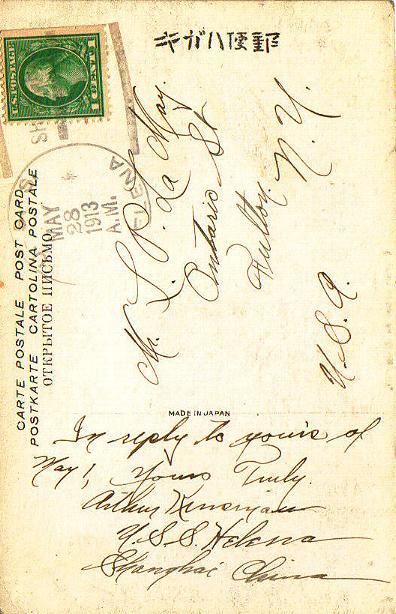 郵便ハガキ
U.S. POSTAGE
1 CENT 1
MAY
28
1913
A.M.
CARTE POSTALE POST CARD
POSTKARTE CARTOLINA POSTALE
ОТКРЫТОЕ ПИСЬМО
Mr. L. P. La May.
Ontario St
Fulton N.Y.
U.S.A.
MADE IN JAPAN
In reply to yours of
May 1, Yours Truly.
Arthur
U.S.S. Helena
Shanghai China